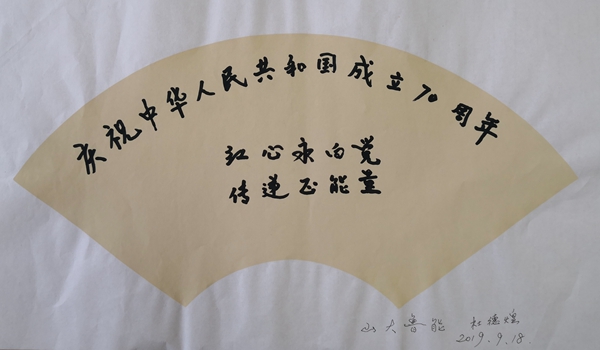 庆祝中华人民共和国成立70周年
红心永向党
传递正能量
山大鲁能 杜德煌
2019.9.18.